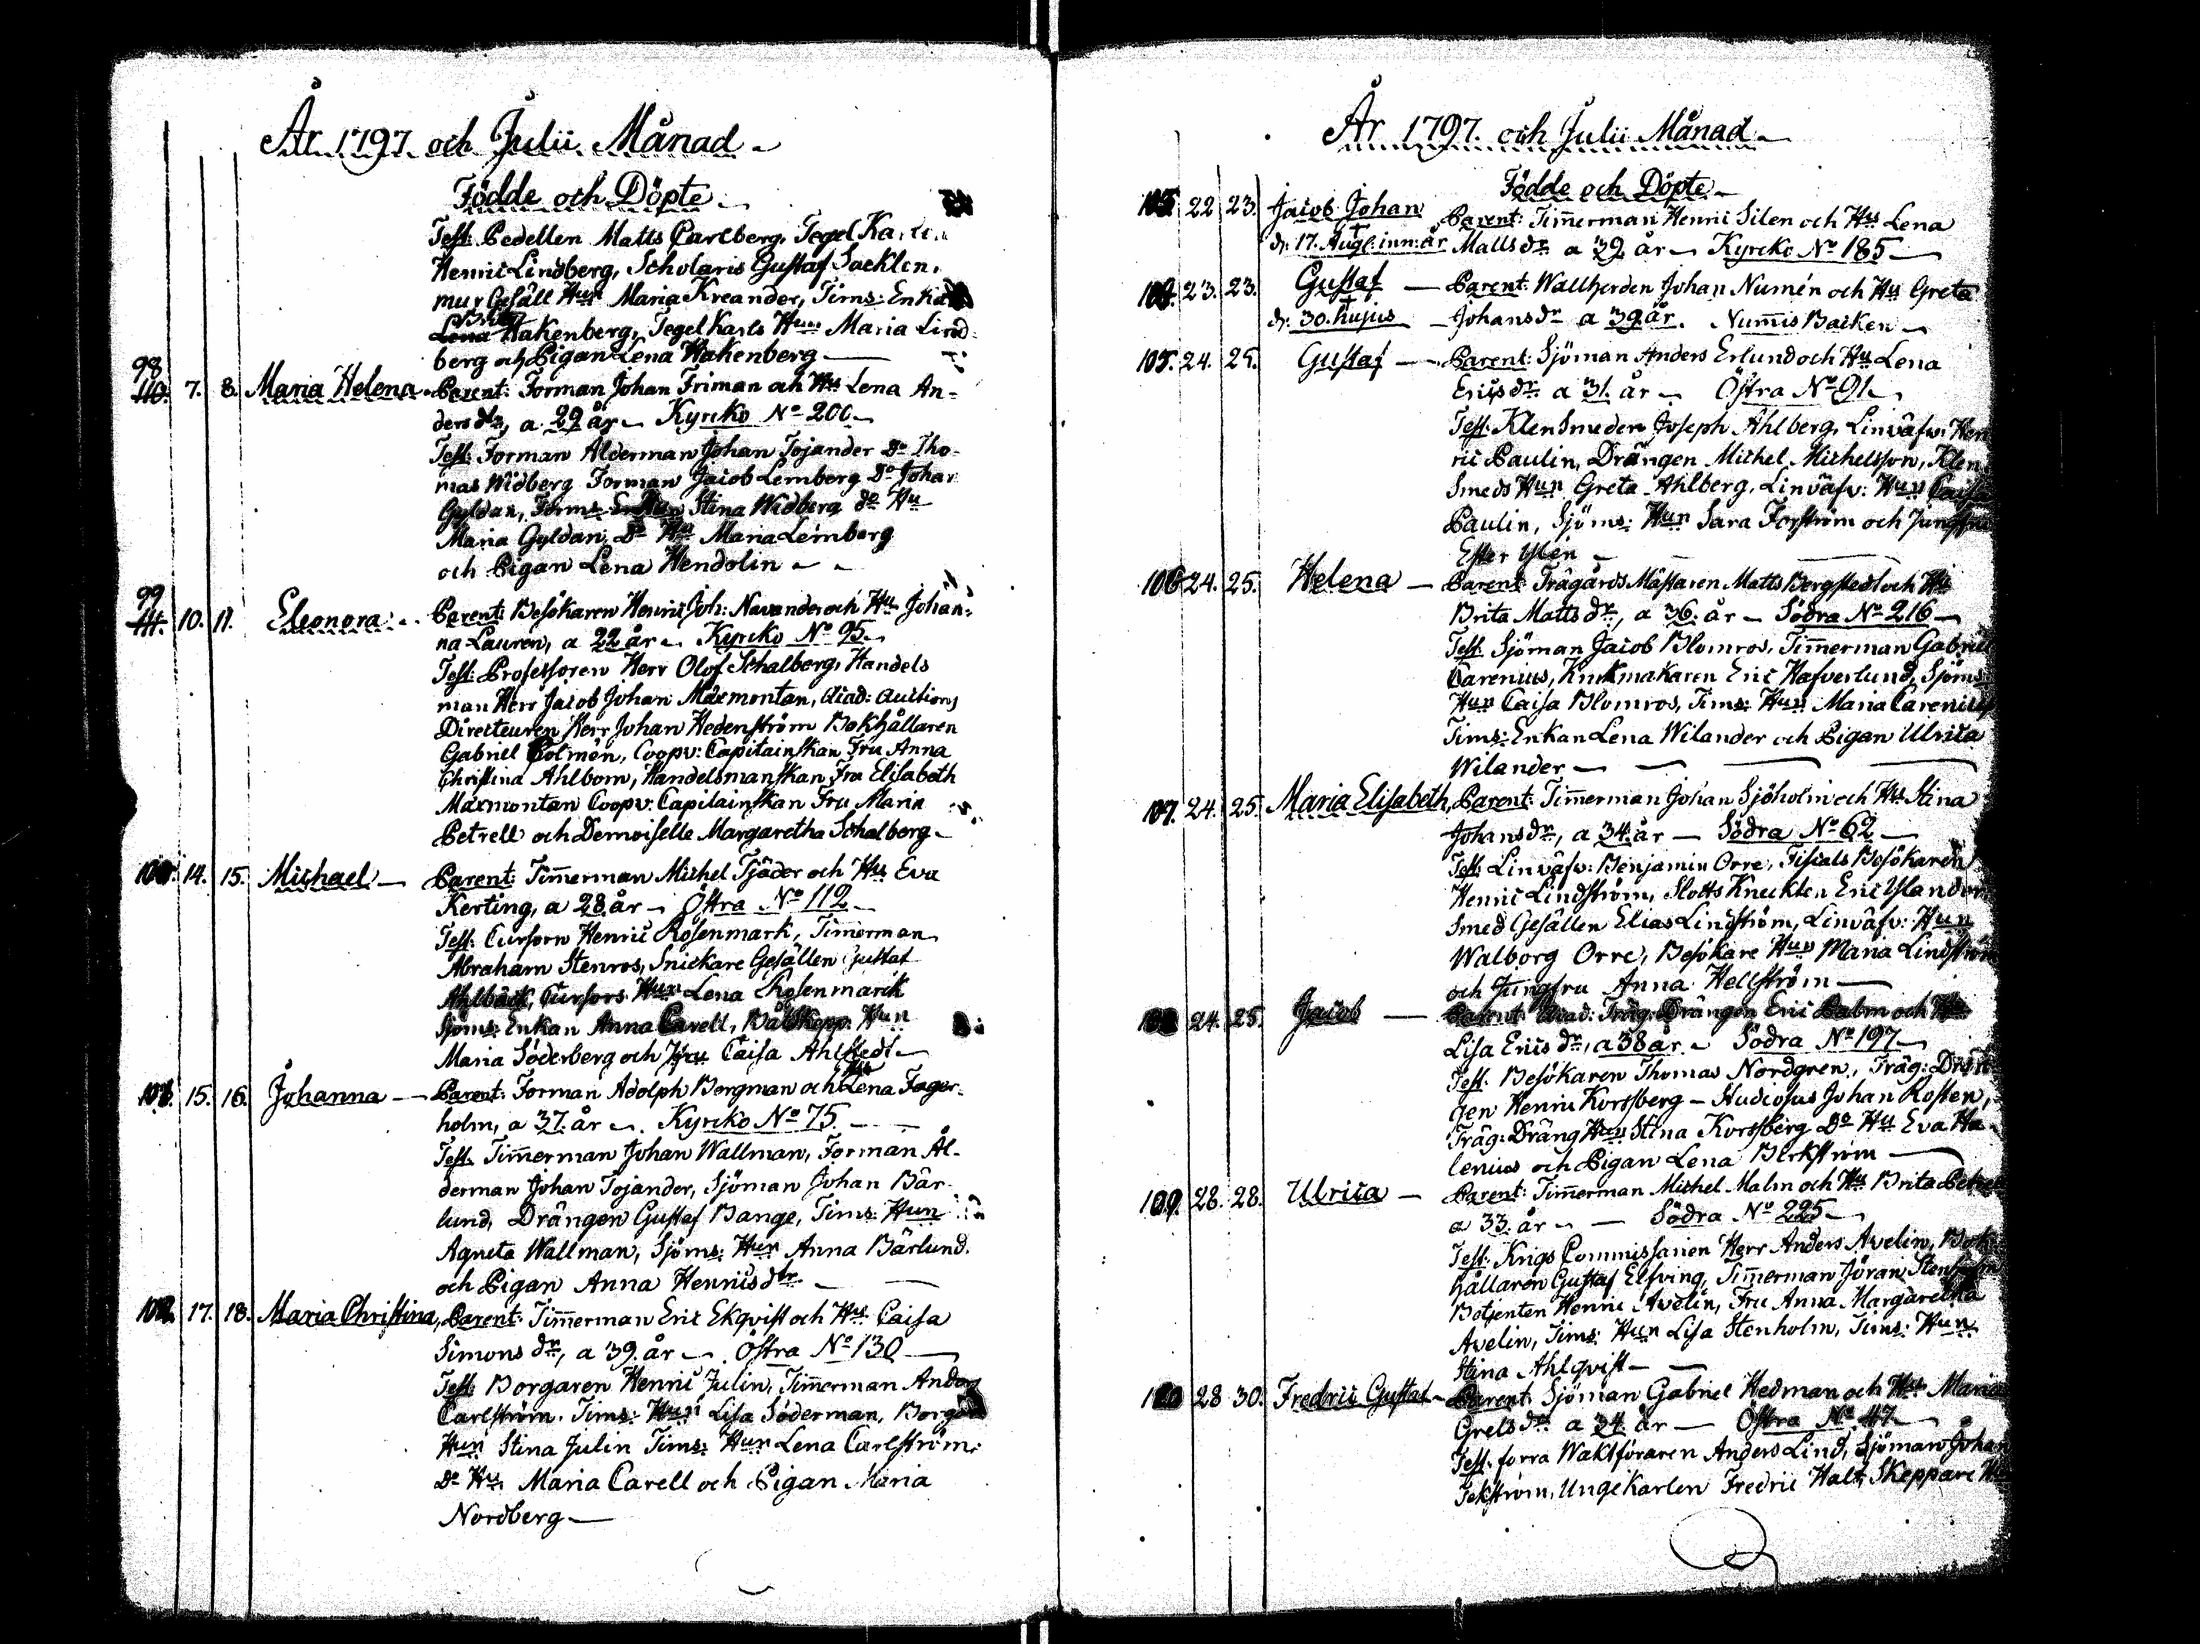 År 1797 och Julii Månad
Födde och Döpte
Test: Pedellen Matts Carlberg, Tegel
Henric Lindberg, Scholaris Gustaf Sacklen,
mur Gesäll Hun Maria Kreander, Tims: Enka
Hakenberg, Tegel Karls Hun Maria Lind-
berg och Pigan Lena Hakenberg
98
7. 8. Maria Helena Parent: Forman Johan Friman och Hu Lena An-
ders dtr, a 29 år Kyrko No 200
Test: Forman Alderman Johan Tojander Do Tho-
mas Widberg Forman Jacob Lemberg Do Johan
Gyldan, Stina Widberg do Hu
Maria Gyldan, Do Hu Maria Lemberg
och Pigan Lena Wendolin
99
10. 11. Eleonora Parent: Besökaren Henric Joh: Navander och Hu Johan-
na Lauren, a 22 år Kyrko No 95
Test: Professoren Herr Olof Schalberg, Handels
man Herr Jacob Johan Maxmontan, Acad: Auctions
Directeuren Herr Johan Hedenström Bokhållaren
Gabriel Polmén, Coopv: Capitainskan Fru Anna
Christina Ahlbom, Handelsmanskan Fru Elisabeth
Maxmontan Coopv: Capitainskan Fru Maria
Petrell och Demoiselle Margaretha Schalberg
100 14. 15. Michael Parent: Timerman Michel Tjäder och Hu Eva
Kerting, a 28 år Östra No 112
Test: Cursorn Henric Rosenmark, Timerman
Abraham Stenros, Snickare Gesällen Gustaf
Ahlbäck, Cursors Hun Lena Rosenmarck
Sjöms: Enkan Anna Carell, Båtskepp: Hun
Maria Söderberg och Jfru Caisa Ahlstedt
101 15. 16. Johanna Parent: Forman Adolph Borgman och Hu Lena Fager-
holm, a 37. år Kyrko No 75
Test: Timerman Johan Wallman, Forman Ål-
derman Johan Tojander, Sjöman Johan Bär-
lund, Drängen Gustaf Bange, Tims: Hun
Agneta Wallman, Sjöms: Hun Anna Bärlund.
och Pigan Anna Henricsdtr
102 17. 18. Maria Christina, Parent: Timerman Eric Ekqvist och Hu Caisa
Simons dr, a 39. år Östra No 130
Test: Borgaren Henric Julin, Timerman Anders
Carlström. Tims: Hun Lisa Söderman, Borgar
Hun Stina Julin Tims: Hun Lena Carlström
Do Hu Maria Carell och Pigan Maria
Nordberg
År 1797. och Julii Månad
Födde och Döpte
22 23. Jacob Johan Parent: Timerman Henric Silen och Hu Lena
d: 17. Aug: inn: år Matts dr a 39 år Kyrko No 185
23. 23. Gustaf Parent: Wallherden Johan Numén och Hu Greta
d: 30. hujus Johans dr a 39 år. Numis Backen
105. 24. 25. Gustaf Parent: Sjöman Anders Erlund och Hu Lena
Erics dr a 31. år Östra No 91
Test: Klensmeden Joseph Ahlberg, Linväfv: Hen
ric Paulin, Drängen Michel Michelsson, Klen
Smeds Hun Greta Ahlberg, Linväfv: Hun Caisa
Paulin, Sjöms: Hun Sara Forström och Jungfru
Ester Ylén
106 24. 25. Helena Parent: Trägårds Mästaren Matts Bergstedt och Hu
Brita Matts dr, a 36. år Södra No 216
Test: Sjöman Jacob Blomros, Timerman Gabriel
Carenius, Krukmakaren Eric Hafverlund, Sjöms:
Hun Caisa Blomros, Tims: Hun Maria Carenius
Tims: Enkan Lena Wilander och Pigan Ulrica
Wilander
107. 24. 25. Maria Elisabeth, Parent: Timerman Johan Sjöholm och Hu Stina
Johans dr, a 34. år Södra No 62
Test: Linväfv: Benjamin Orre, Fiscals Besökaren
Henric Lindström, Slotts Knechten Eric Ylander
Smed Gesällen Elias Lindström, Linväfv: Hun
Walborg Orre, Besökare Hun Maria Lindström
och Jungfru Anna Hellström
24. 25. Jacob Parent: Acad: Träg: Drängen Eric Palm och Hu
Lisa Erics dr, a 38 år Södra No 197
Test: Besökaren Thomas Nordgren, Träg: Drän
gen Henric Korssberg Studiosus Johan Rosten,
Träg: Dräng Hun Stina Korssberg Do Hu Eva Ha-
lenius och Pigan Lena Bäckström
109. 28. 28. Ulrica Parent: Timerman Michel Malm och Hu Brita
a 33. år Södra No 225
Test: Krigs Commissarien Herr Anders Avelin, Bok
hållaren Gustaf Elfving, Timerman Jöran Stenholm
Betjenten Henric Avelin, Fru Anna Margaretha
Avelin, Tims: Hun Lisa Stenholm, Tims: Hun
Stina Ahlqvist
28 30. Fredric Gustaf Parent: Sjöman Gabriel Hedman och Hu Maria
Grels dr a 34. år Östra No 47
Test: forra Waktföraren Anders Lind, Sjöman Johan
Ekström, Unge Karlen Fredric Halt, Skeppare